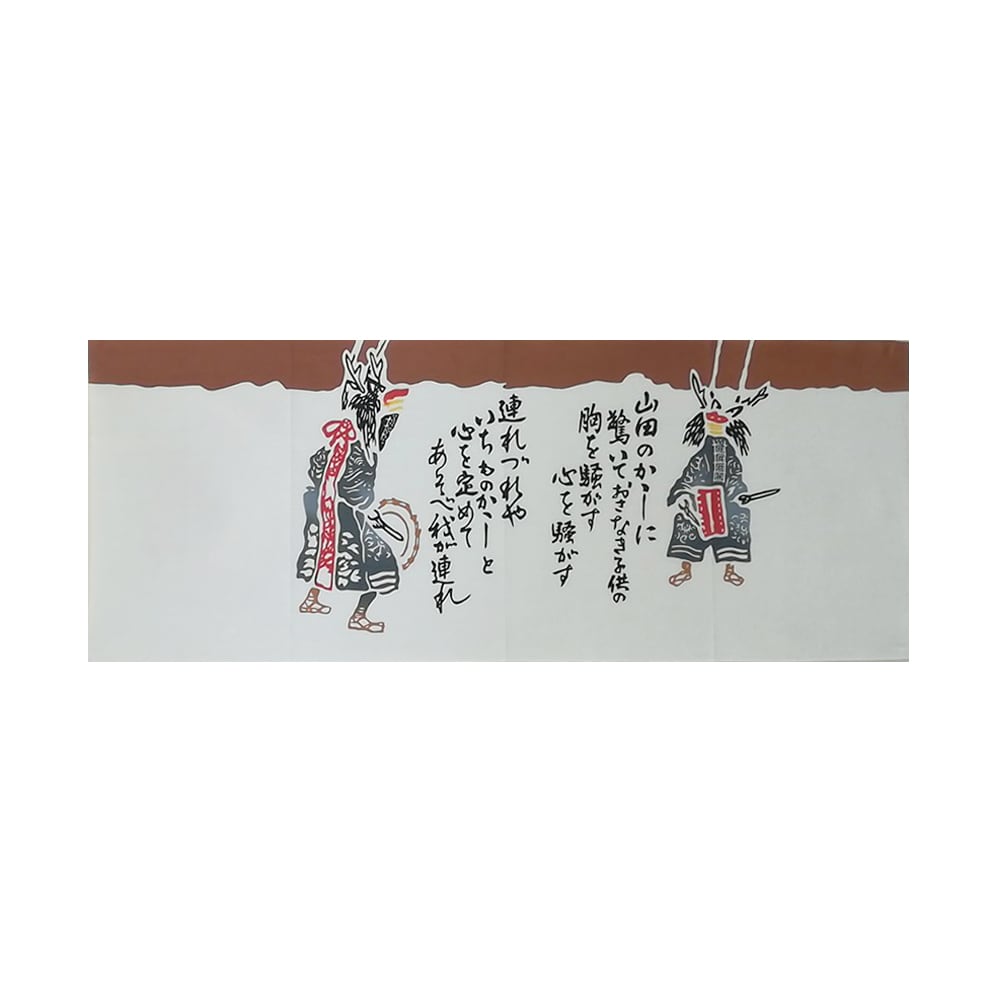 山田のかゝしに
驚いておさなき子供の
胸を騒がす
心を騒がす
連れづれや
いちものかゝーと
心を定めて
あそべ我が連れ